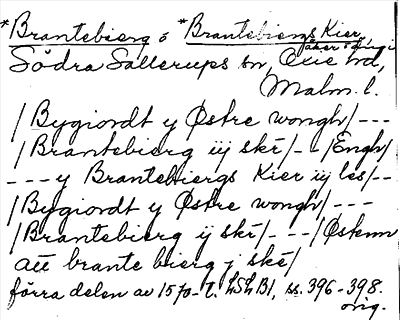 *Brantebierg o *Brantebiergs Kier,
åker o äng i
Södra Sallerups sn, Oxie hd,
Malm. l.
/Bygiordt y Østre wongh/ - - -
/Brantebierg iij skr/ - - /Engh/
- - - y Brantebiergs Kier iij les/ - -
/Bygiordt y Østre wongh/ - - -
/Brantebierg ij skr/ - - - /Østenn
att brante bierg j skr/
förra delen av 1570-t. LSLB1, ss. 396-398.
orig.